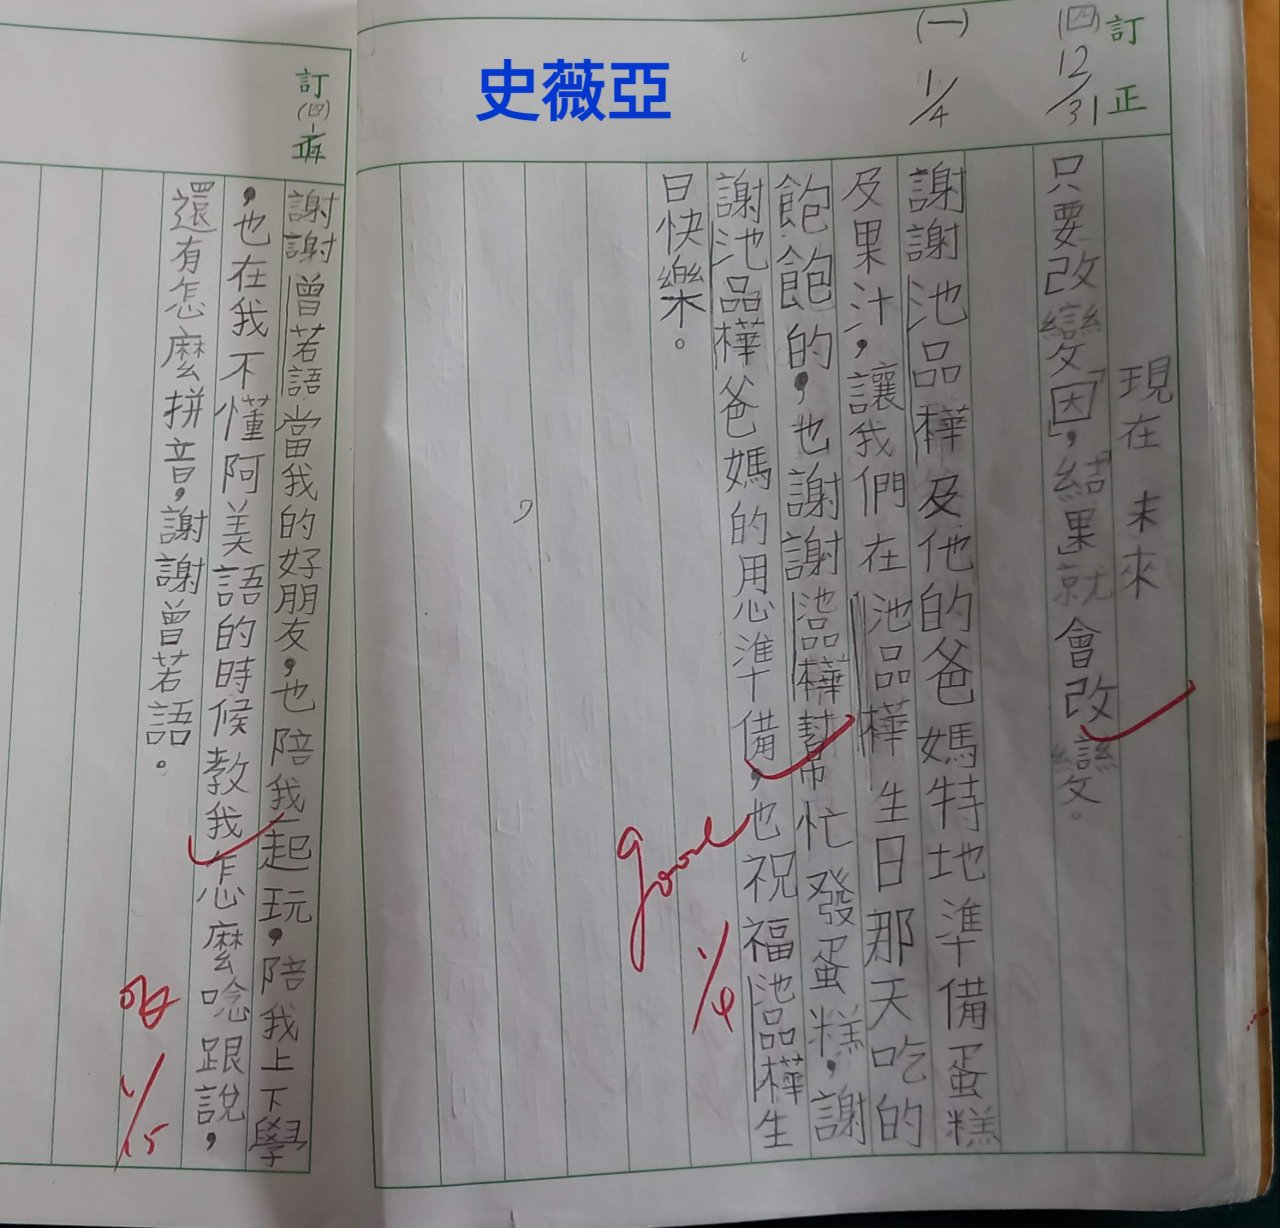 史薇亞
訂正
(四)
12/31
(一)
1/4
現在 未來
只要改變「因」，「結果」就會改變。
謝謝池品樺及他的爸媽特地準備蛋糕
及果汁，讓我們在池品樺生日那天吃的
飽飽的，也謝謝池品樺幫忙發蛋糕，謝
謝池品樺爸媽的用心準備，也祝福池品樺生
日快樂。
good
1/4
訂正
(四)
謝謝曾若語當我的好朋友，也陪我一起玩，陪我上下學
，也在我不懂阿美語的時候教我怎麼唸跟說，
還有怎麼拼音，謝謝曾若語。
1/15